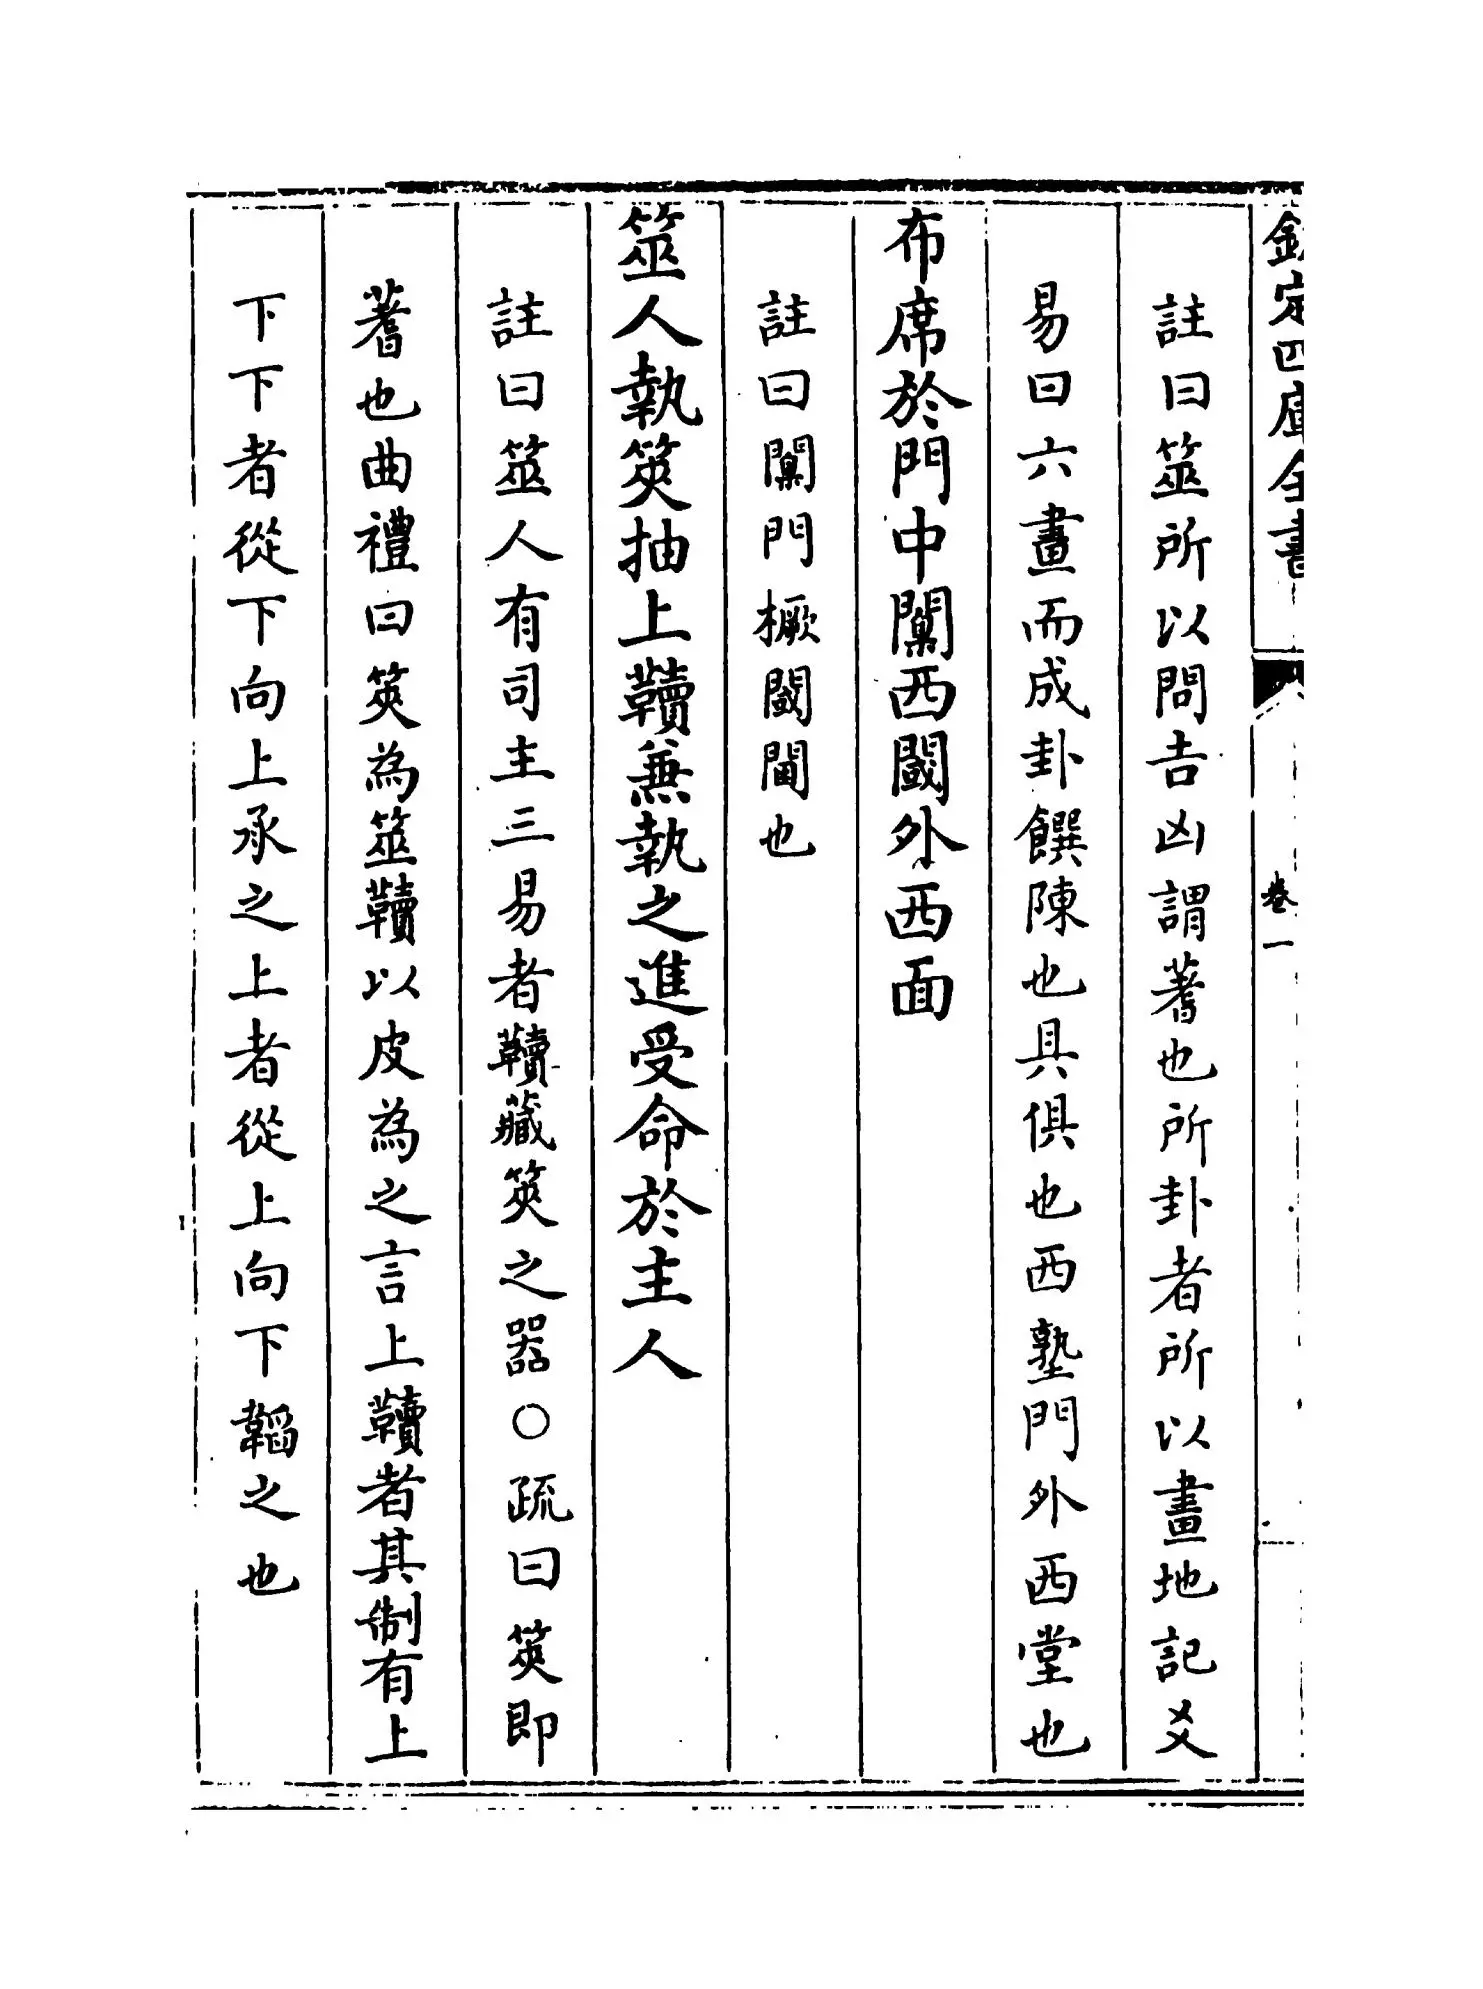 欽定四庫全書
卷一
註曰筮所以問吉凶謂蓍也所卦者所以畫地記爻
易曰六畫而成卦饌陳也具俱也西塾門外西堂也
布席於門中闑西閾外西面
註曰闑門橛閾閫也
筮人執筴抽上韇兼執之進受命於主人
註曰筮人有司主三易者韇藏筴之器○疏曰筴即
蓍也曲禮曰筴為筮韇以皮為之言上韇者其制有上
下下者從下向上承之上者從上向下韜之也